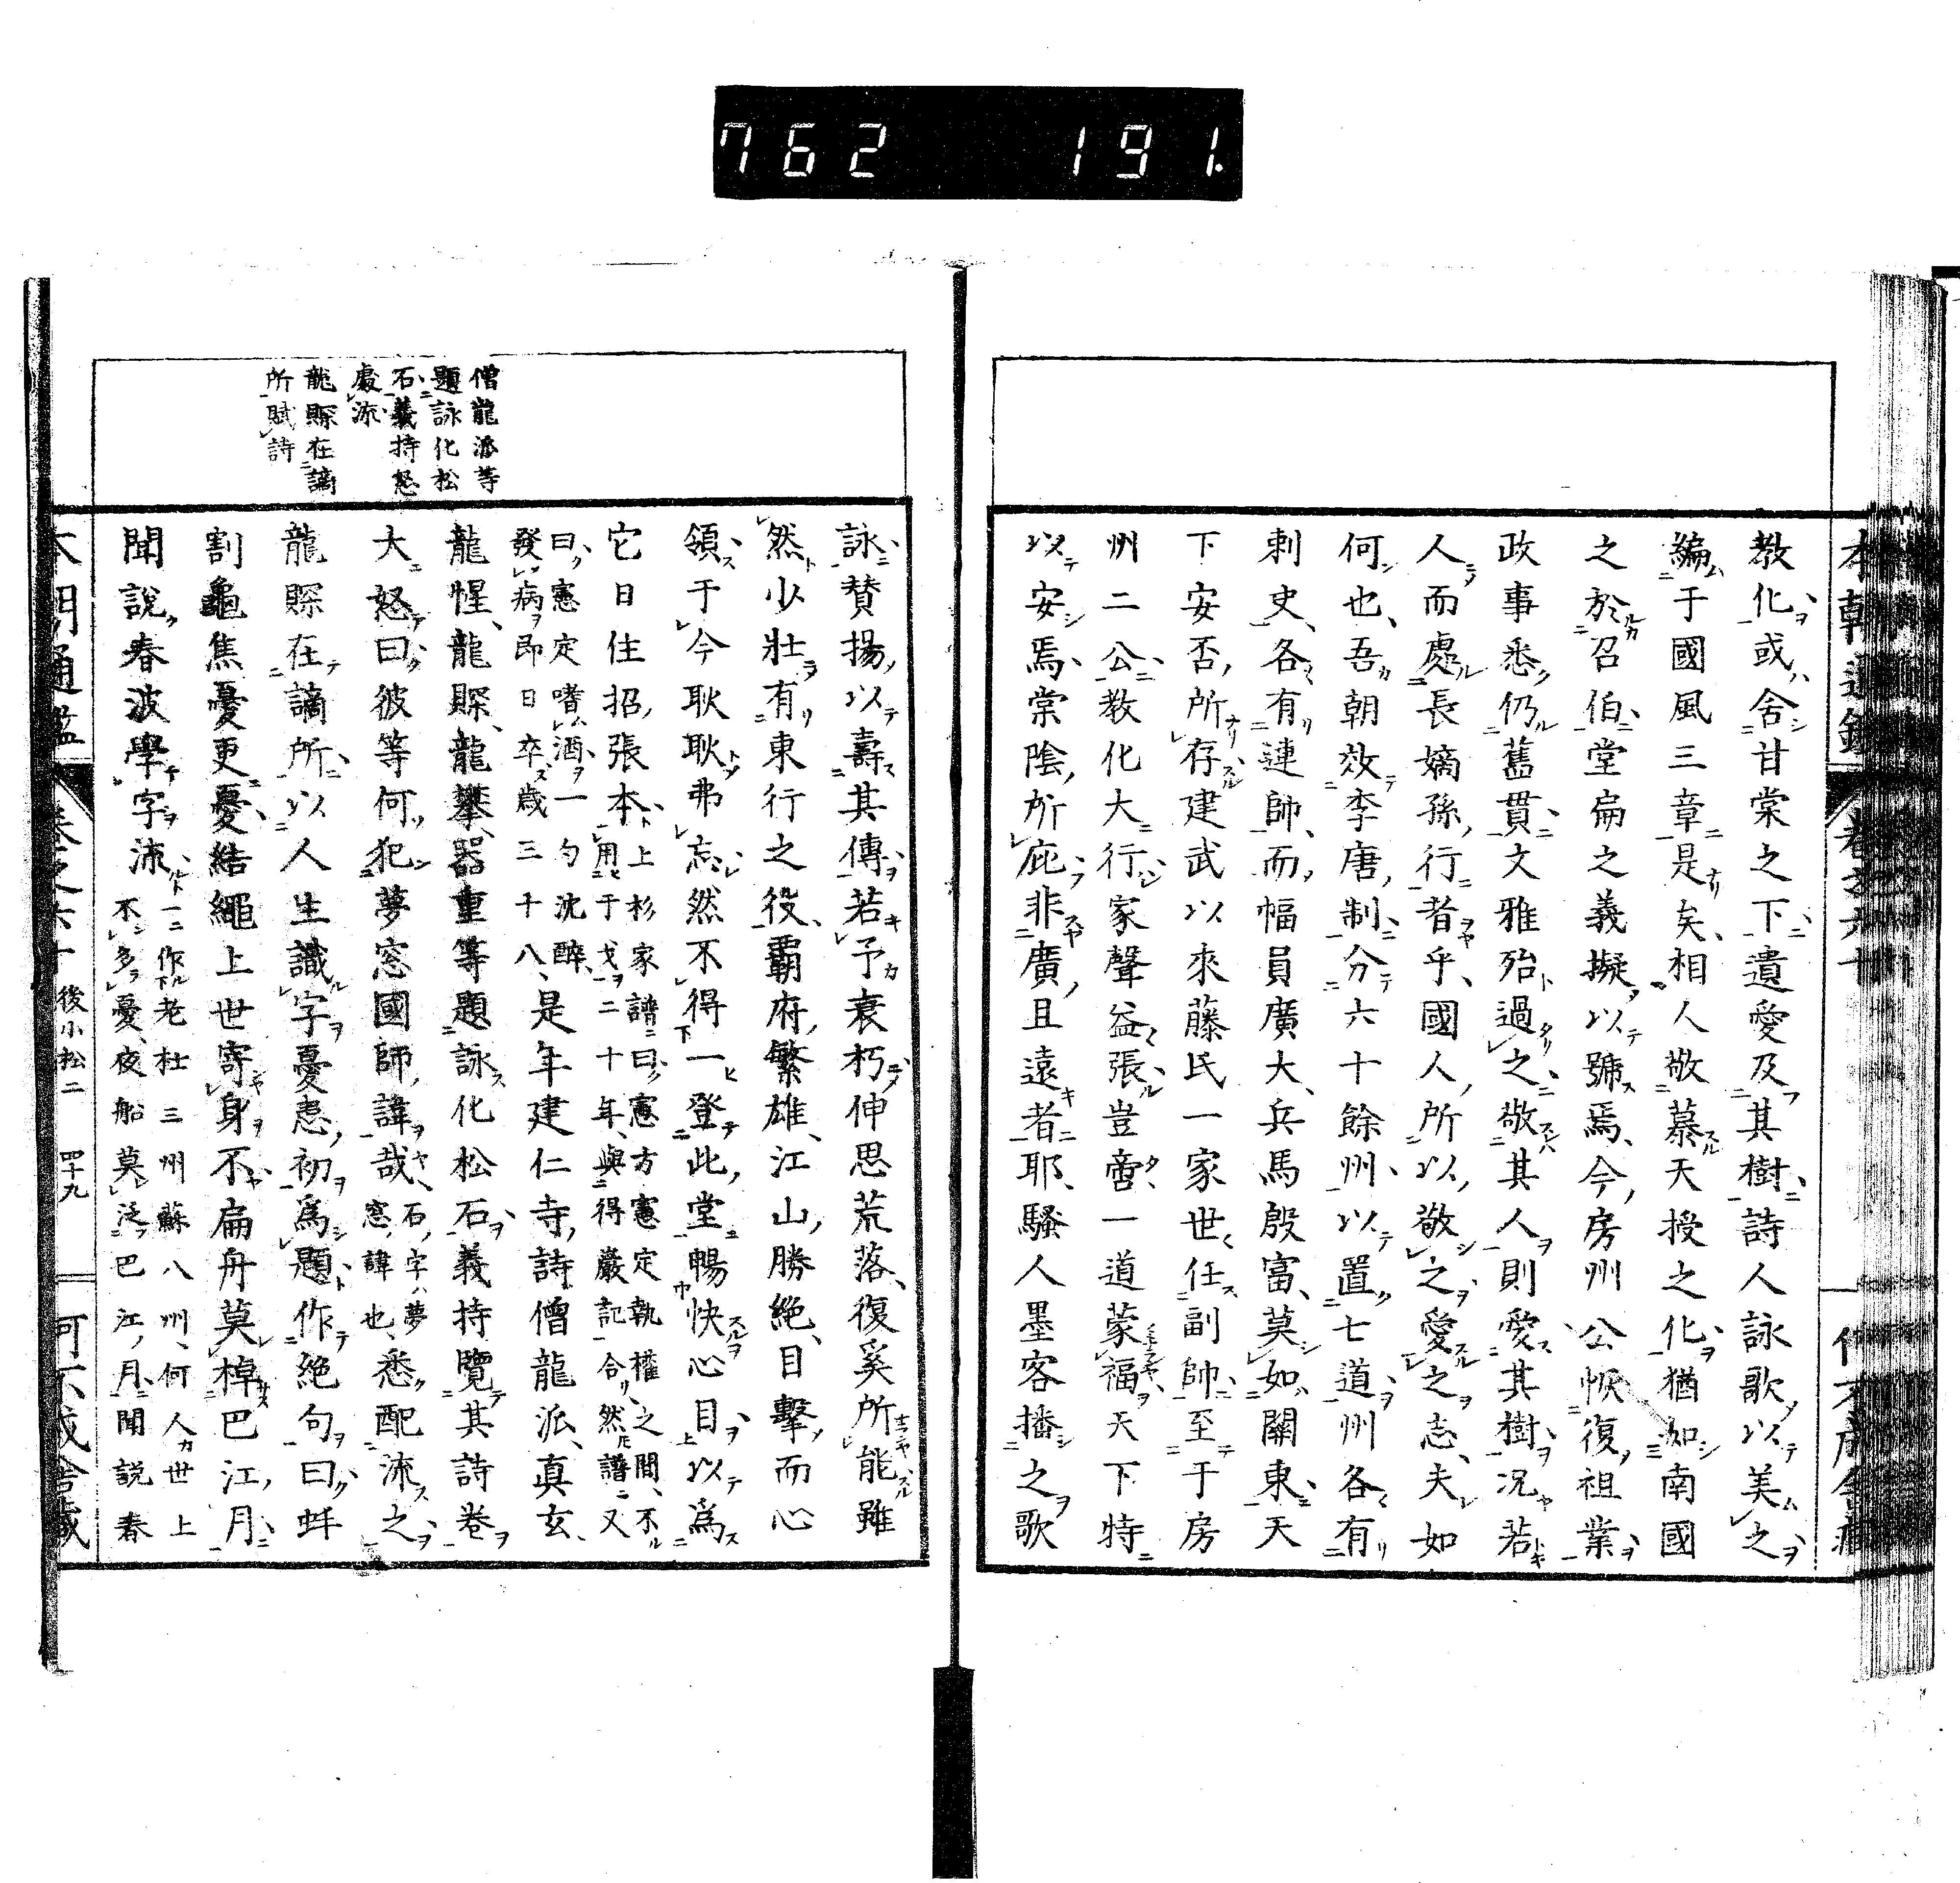 762 191.
教化或舍甘棠之下遺愛及其樹詩人詠歌以美之
編于國風三章是矣相人敬慕天授之化猶如南國
之於召伯堂扁之義擬以號焉今房州公恢復祖業
政事悉仍舊貫文雅殆過之敬其人則愛其樹況若
人而處長嫡孫行者乎國人所以敬之愛之志夫如
何也吾朝效李唐制分六十餘州以置七道州各有
刺史各有連帥而幅員廣大兵馬殷富莫如關東天
下安否所存建武以來藤氏一家世任副帥至于房
州二公教化大行家聲益張豈啻一道蒙福天下特
以安焉棠陰所庇非廣且遠者耶騷人墨客播之歌
僧龍派等
題詠化松
石義持怒
處流
龍賝在謫
所賦詩
詠贊揚以壽其傳若予衰朽伸思荒落復奚所能雖
然少壯有東行之役霸府繁雄江山勝絶目擊而心
領于今耿耿弗忘然不得一登此堂暢快心目以爲
它日住招張本上杉家譜曰憲方憲定執權之間不
用于戈二十年與得嚴記合然譜又
曰憲定嗜酒一勺沈醉
發病即日卒歲三十八是年建仁寺詩僧龍派眞玄
龍惺龍賝龍攀器重等題詠化松石義持覽其詩卷
大怒曰彼等何犯夢窓國師諱哉石字夢
窓諱也悉配流之
龍賝在謫所以人生識字憂患初爲題作絶句曰蚌
割龜焦憂更憂結繩上世寄身不扁舟莫棹巴江月
聞說春波學字流一作老杜三州蘇八州何人世上
不多憂夜船莫泛巴江月聞說春
本朝通鑑 卷之六十 後小松二 四十九